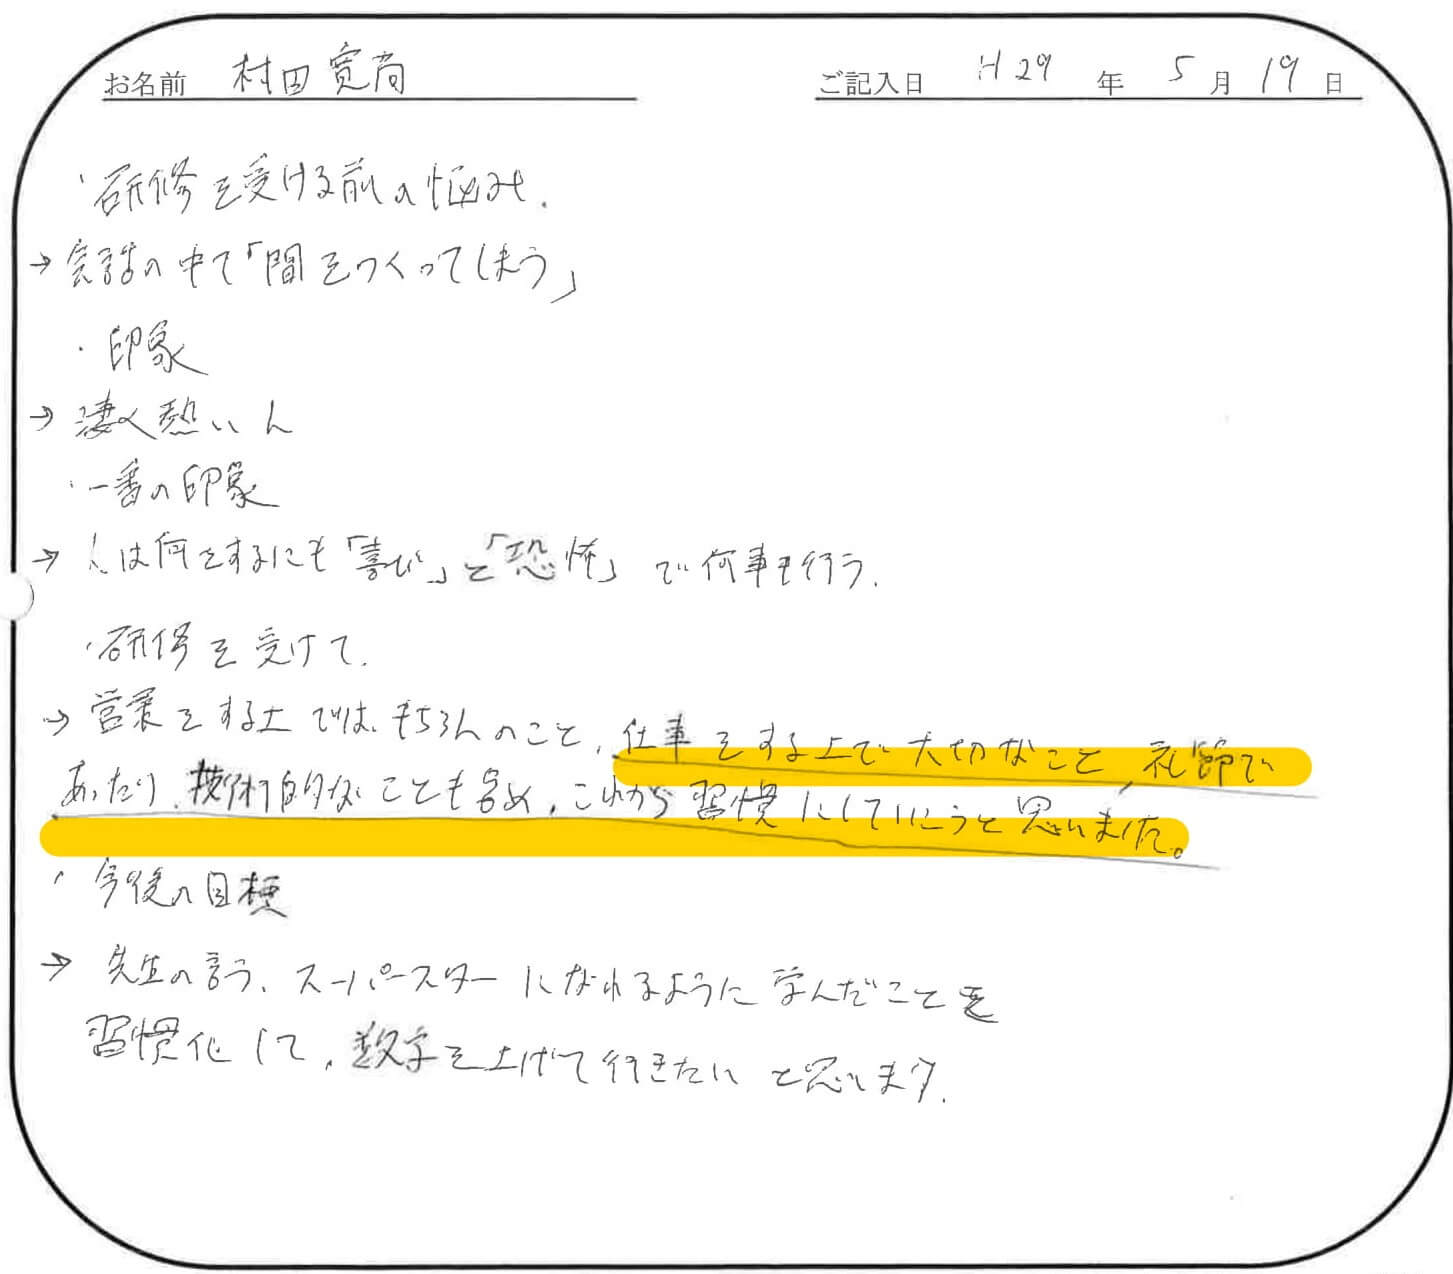 お名前 村田寛尚 ご記入日 H29年 5月 19日
・研修を受ける前の悩み.
→会話の中で「間をつくってしまう」
・印象
→凄く熱い人
・一番の印象
→人は何をするにも「喜び」と「恐怖」で何事も行う.
・研修を受けて.
→営業をする上ではもちろんのこと、仕事をする上で大切なこと、礼節で
あったり、技術的なことも含め、これから習慣にしていこうと思いました。
・今後の目標
→先生の言う、スーパースターになれるように学んだことを
習慣化して、数字を上げて行きたいと思います.